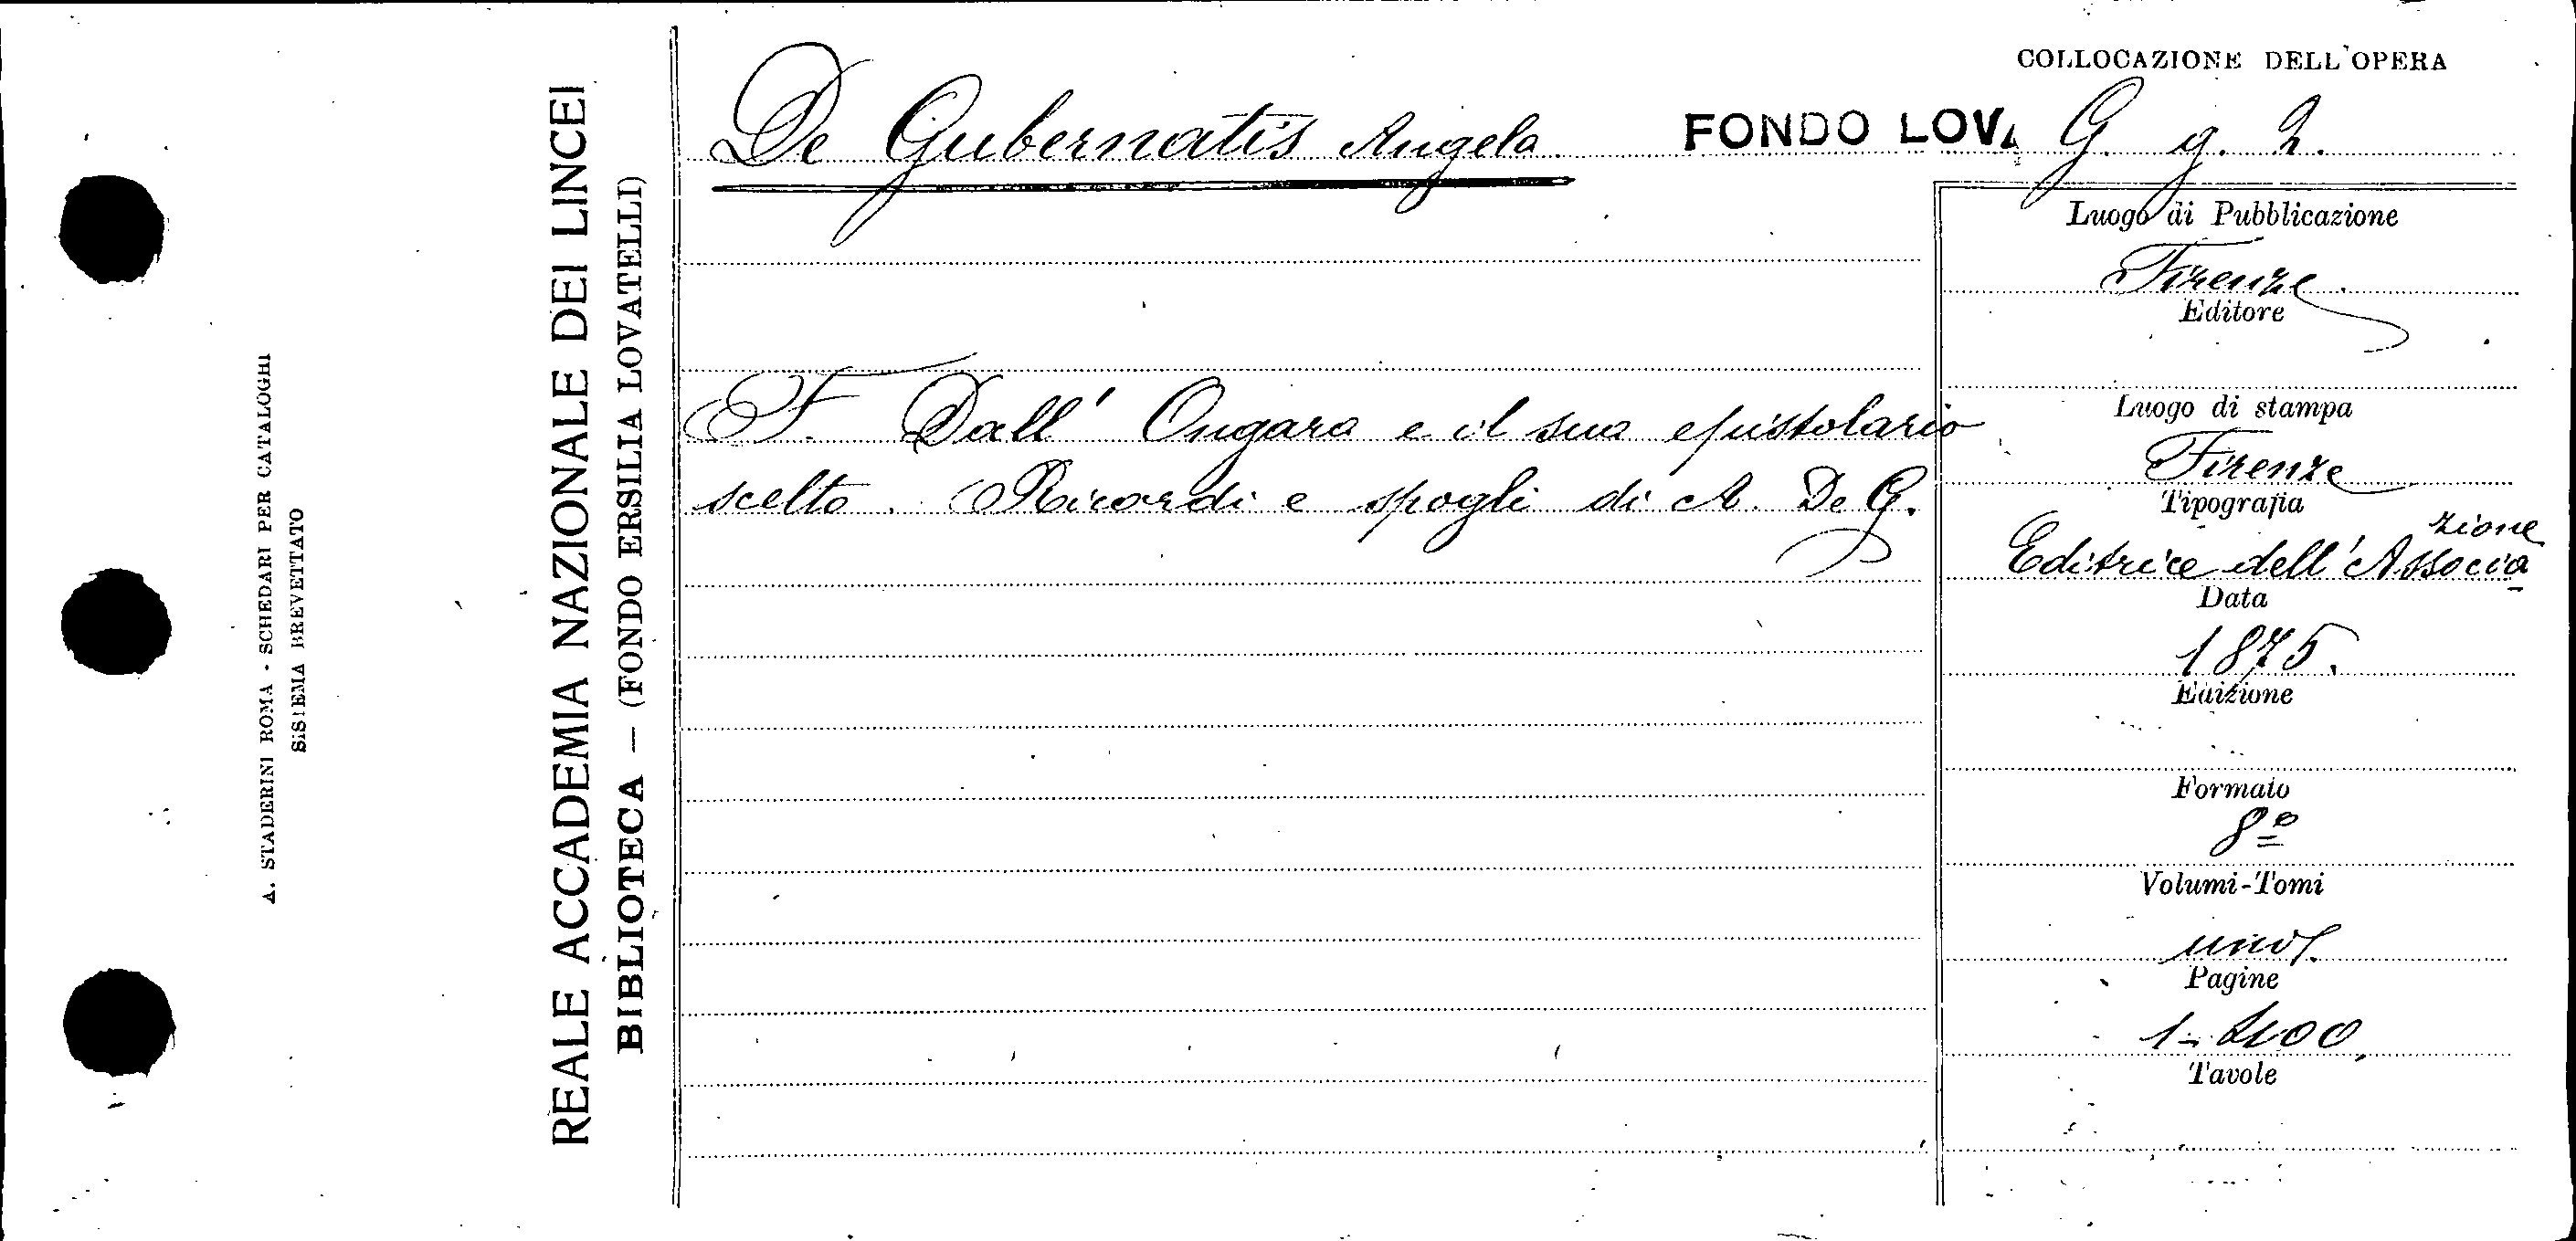 A. STADERINI ROMA - SCHEDARI PER CATALOGHI
SISTEMA BREVETTATO
REALE ACCADEMIA NAZIONALE DEI LINCEI
BIBLIOTECA — (FONDO ERSILIA LOVATELLI)
COLLOCAZIONE DELL'OPERA
De Gubernatis Angelo FONDO LOV. G. g. 2.
F. Dall' Ongaro e il suo epistolario
scelto. Ricordi e spogli di A. De G.
Luogo di Pubblicazione
Firenze
Editore
Luogo di stampa
Firenze
Tipografia
Editrice dell'Associa
zione
Data
1875.
Edizione
Formato
8º
Volumi-Tomi
uno
Pagine
1-400
Tavole